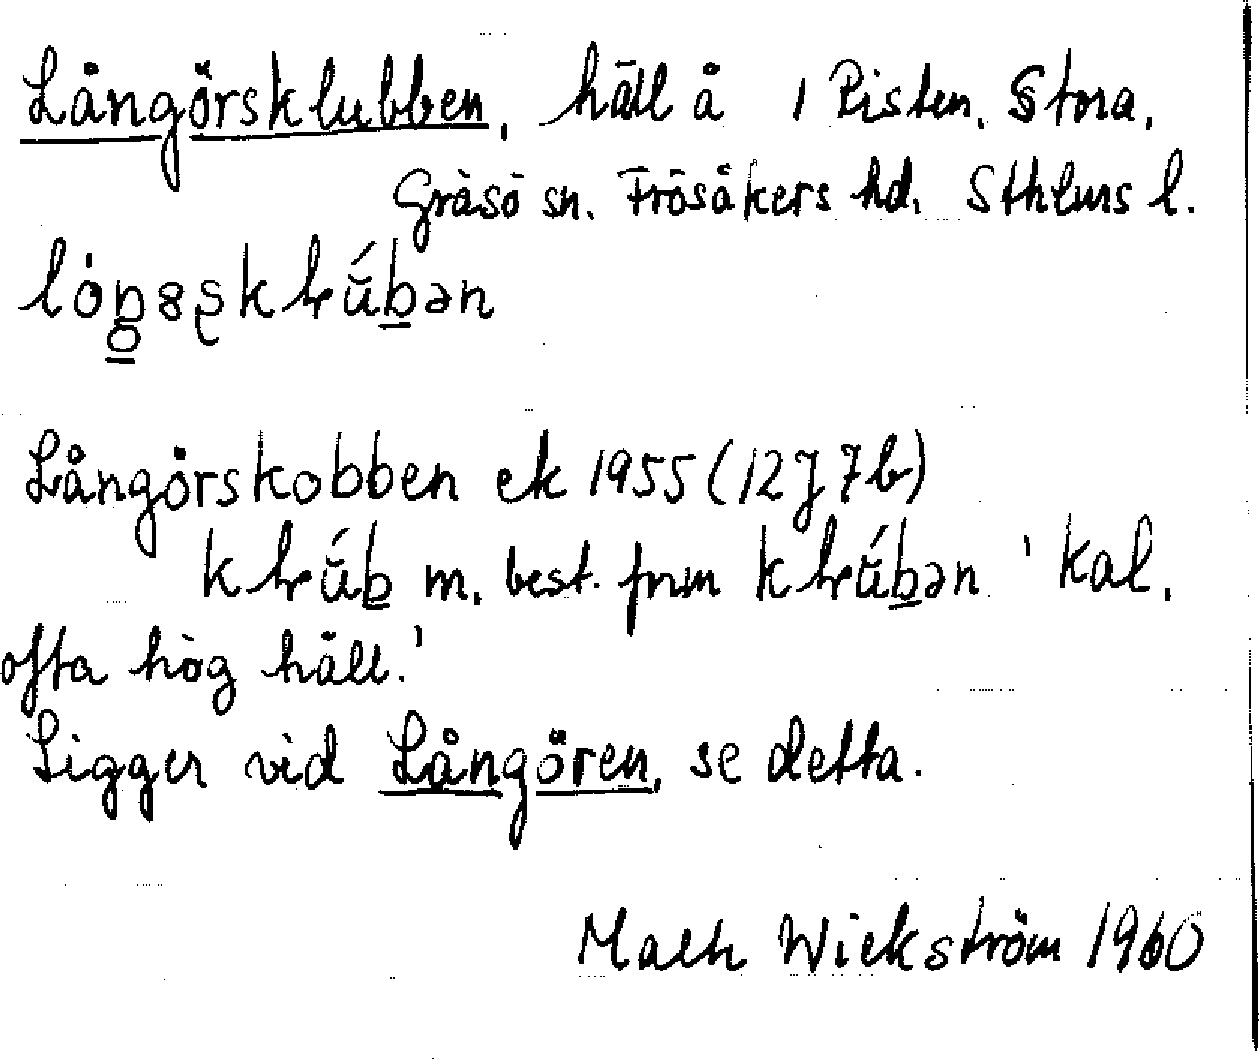 Långörsklubben, häll å 1 Risten, Stora,
Gräsö sn. Frösåkers hd. Sthlms l.
Långörskobben ek 1955 (12J7b)
m. best. form 'kal,
ofta hög häll.'
Ligger vid Långören, se detta.
Wickström 1960